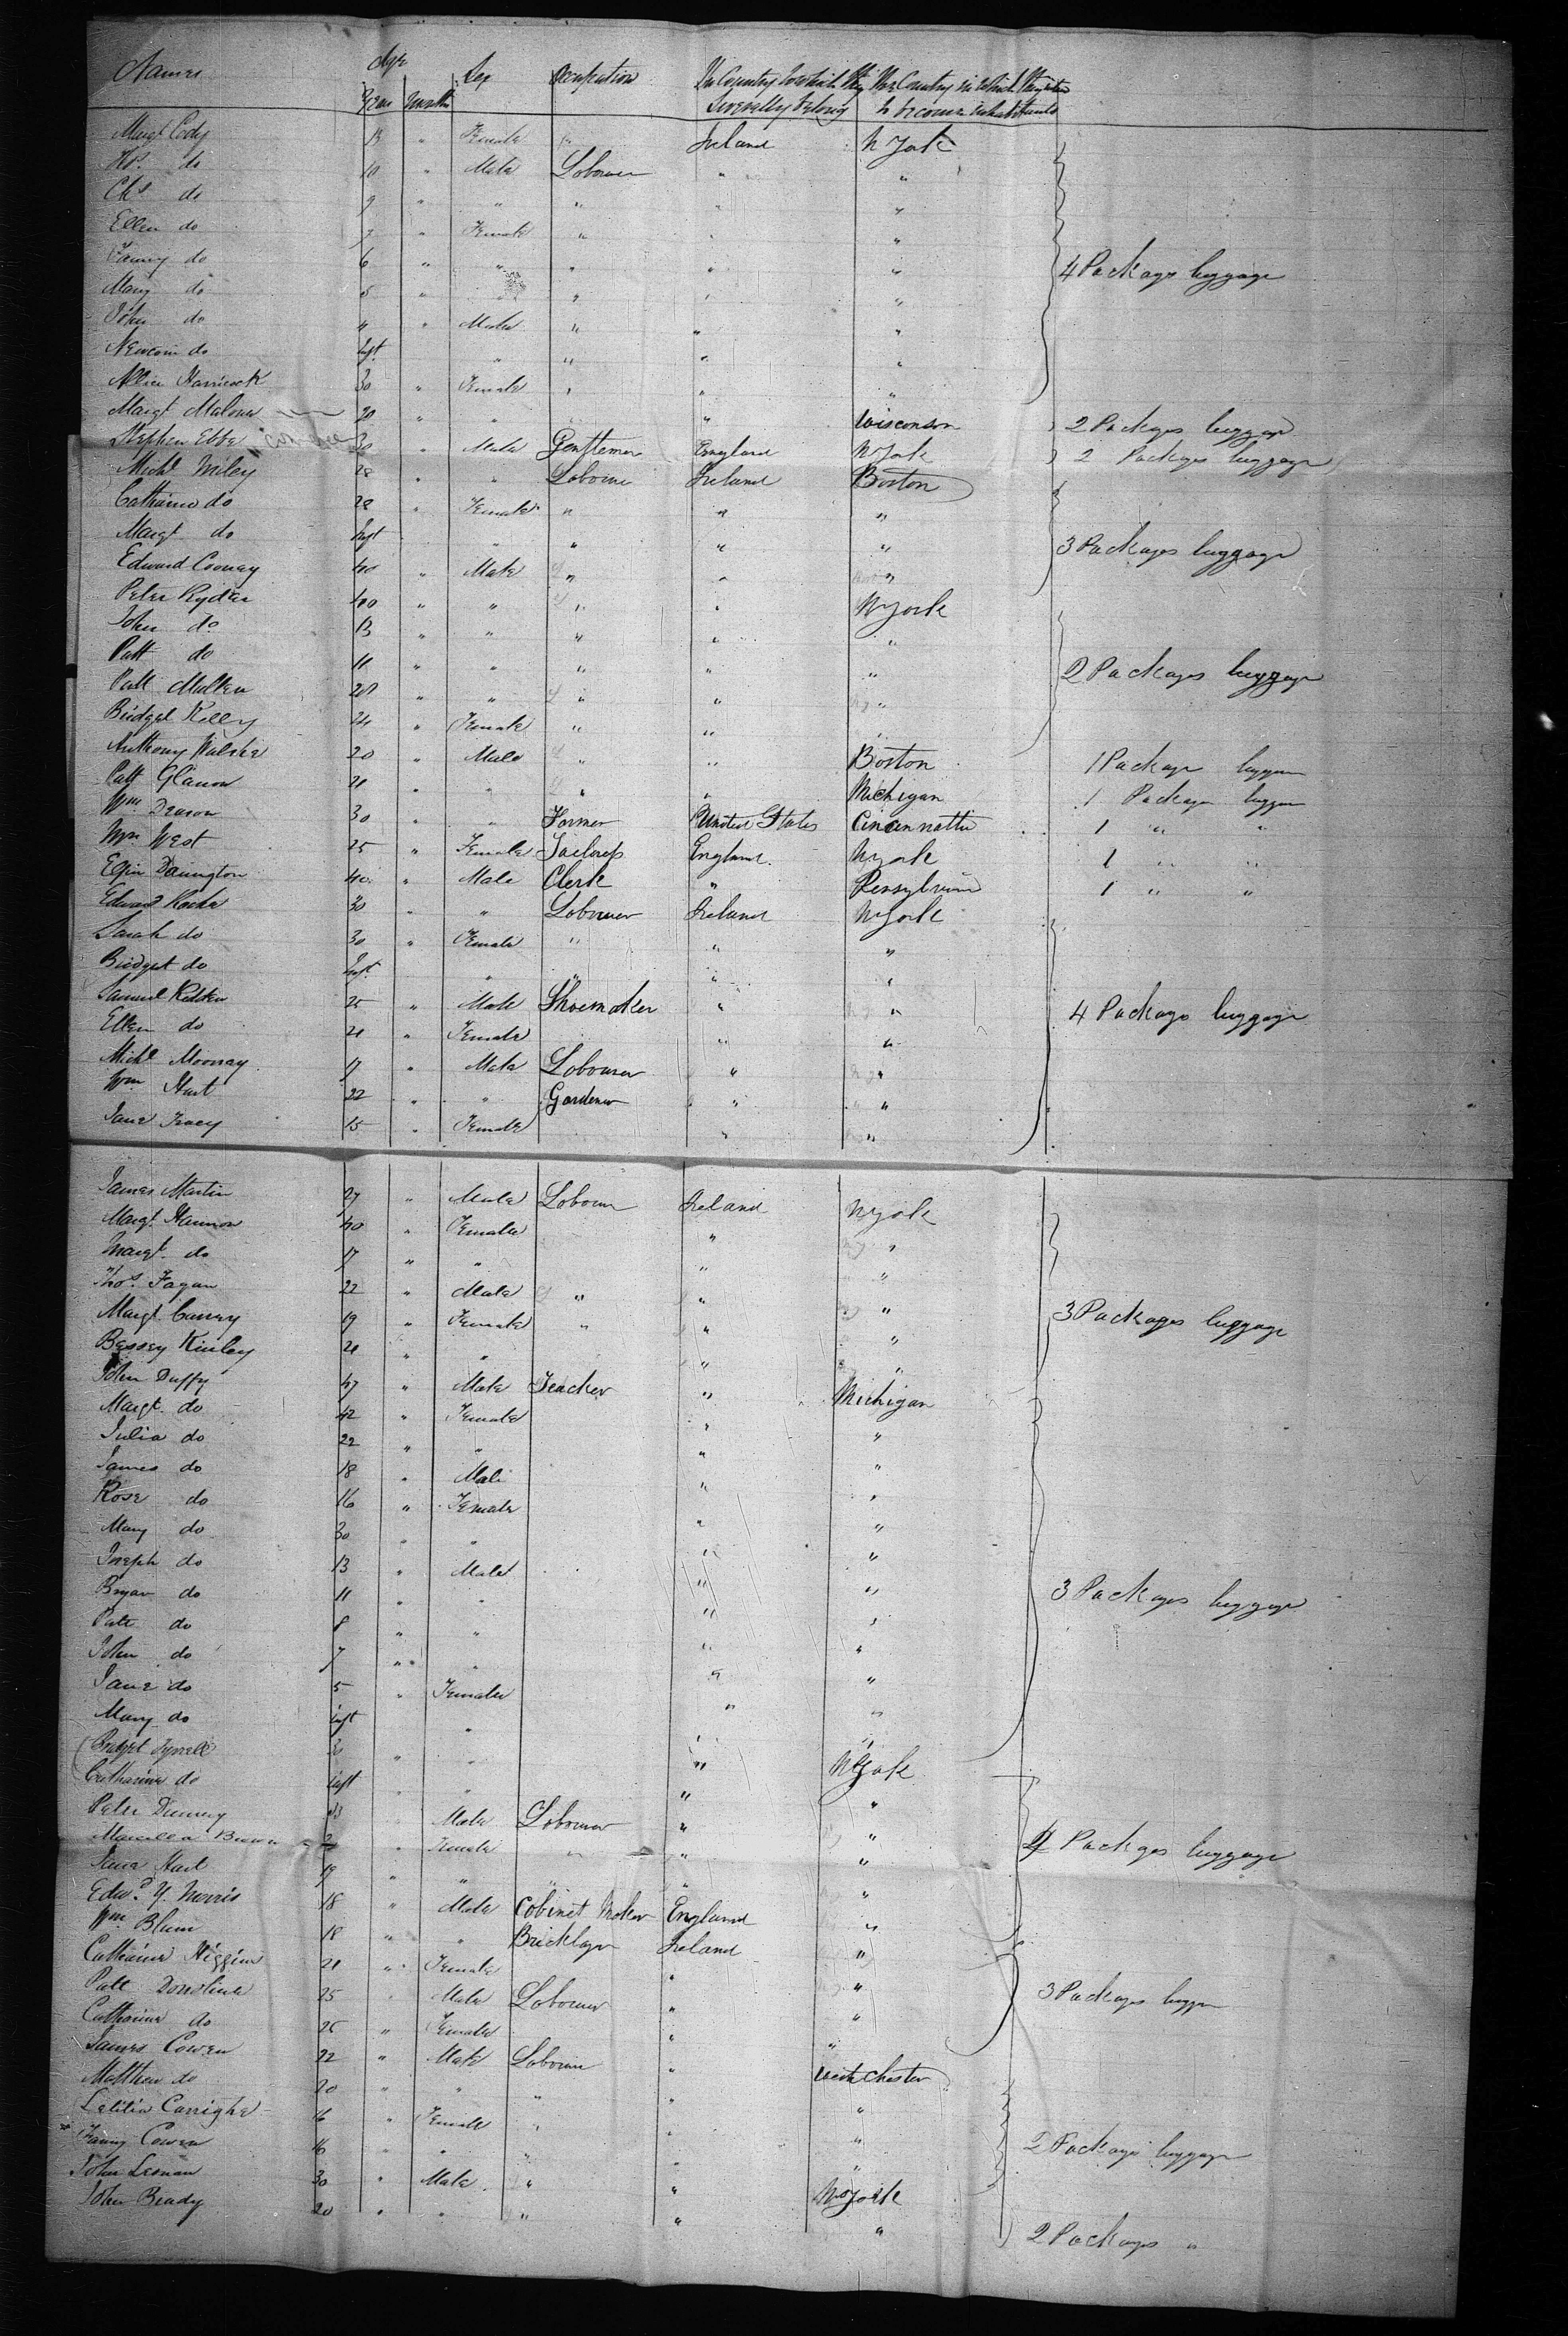 Names Age Sex Occupation The Country to which they The Country in which they
Years Months severally belong to become inhabitants
Margt Cody 13 " Female " Ireland N York
do 10 " Male Labourer " "
Chs do 9 " " " " "
Ellen do 7 " Female " " "
Fanny do 6 " " " " " 4 Packages luggage
Mary do 5 " " " " "
John do 4 " Male " " "
do Inft " " " "
Alice 30 " Female " " "
Margt Malone 20 " " " Wisconson 2 Packages luggage
Stephen 30 " Male Gentleman England N York 2 Packages luggage
Michl Miley 28 " " Labourer Ireland Boston
Catharine do 28 " Female " " "
Margt do Inft " " " " 3 Packages luggage
Edward Cooney 40 " Male " " "
Peter Ryder 40 " " " " N York
John do 13 " " " " "
Patt do 11 " " " " " 2 Packages luggage
Patt 20 " " " " "
Bridget Kelly 24 " Female " " "
Anthony Walshe 20 " Male " " Boston 1 Package luggage
Patt 21 " " " " Michigan 1 Package luggage
Wm 30 " " Farmer United States Cincinnattie 1 " "
West 25 " Female England N York 1 " "
40 " Male Clerk " Pensylvania 1 " "
Edward Roche 30 " " Labourer Ireland N York
Sarah do 30 " Female " " "
Bridget do Inft " " " "
Samuel 25 " Male Shoemaker " " 4 Packages luggage
Ellen do 21 " Female " "
Michl Mooney 17 " Male Labourer " "
Wm Hart 22 " " Gardener " "
Jane Tracey 15 " Female " "
James Martin 27 " Male Labourer Ireland N York
Margt Hannon 40 " Female " "
Margt do 17 " " " "
Thos Fagan 22 " Male " " "
Margt 19 " Female " " " 3 Packages luggage
Bessey Kinley 21 " " " "
John Duffy 47 " Male Teacher " Michigan
Margt do 42 " Female " "
Julia do 22 " " " "
James do 18 " Male " "
Rose do 16 " Female " "
Mary do 30 " " " "
Joseph do 13 " Male " "
Bryan do 11 " " " " 3 Packages luggage
Patt do 8 " " " "
John do 7 " " " "
Jane do 5 " Female " "
Mary do inft " " "
Bridget Tyrrell " " " N York
Catharine do inft " " " "
Peter " Male Labourer " "
Marcella Brown " Female " " " 4 Packages luggage
Jane Hart 19 " " " " "
Edwd Y. Morris 18 " Male Cabinet Maker England "
Wm Blum 18 " " Bricklayer Ireland "
Catharine Higgins 21 " Female " "
Patt 25 " Male Labourer " " 3 Packages luggage
Catharine do 25 " Female " "
James Cowen 22 " Male Labourer " West Chester
Matthew do 20 " " " " "
Letitia 16 " Female " " "
Fanny Cowen 16 " " " " " 2 Packages luggage
John 30 " Male " " N York
John Brady 20 " " " " " 2 Packages "